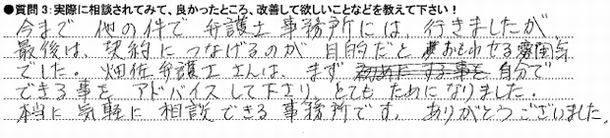 ●質問3:実際に相談されてみて、良かったところ、改善して欲しいことなどを教えて下さい!
今まで 他の件で 弁護士事務所には、行きましたが
最後は、契約につなげるのが 目的だと おもわせる雰囲気
でした。畑佐弁護士さんは、まず 自分で
できる事を アドバイスして下さり、とても ためになりました。
本当に 気軽に 相談できる 事務所です。ありがとうございました。